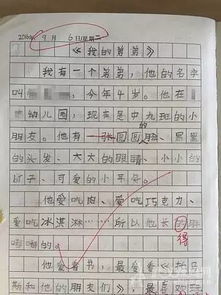 9月6日星期二
《我的弟弟》
我有一个弟弟，他的名字
叫，今年4岁。他在
幼儿园，现在是中九班的小
朋友。他有一张圆圆的脸、黑黑
的头发、大大的眼睛、小小的
可爱的小耳朵。
他爱吃肉、爱吃巧克力、
爱吃冰淇淋……所以他长得
嘟嘟的。
他爱看书，最爱看《托
斯和他的朋友们》，最